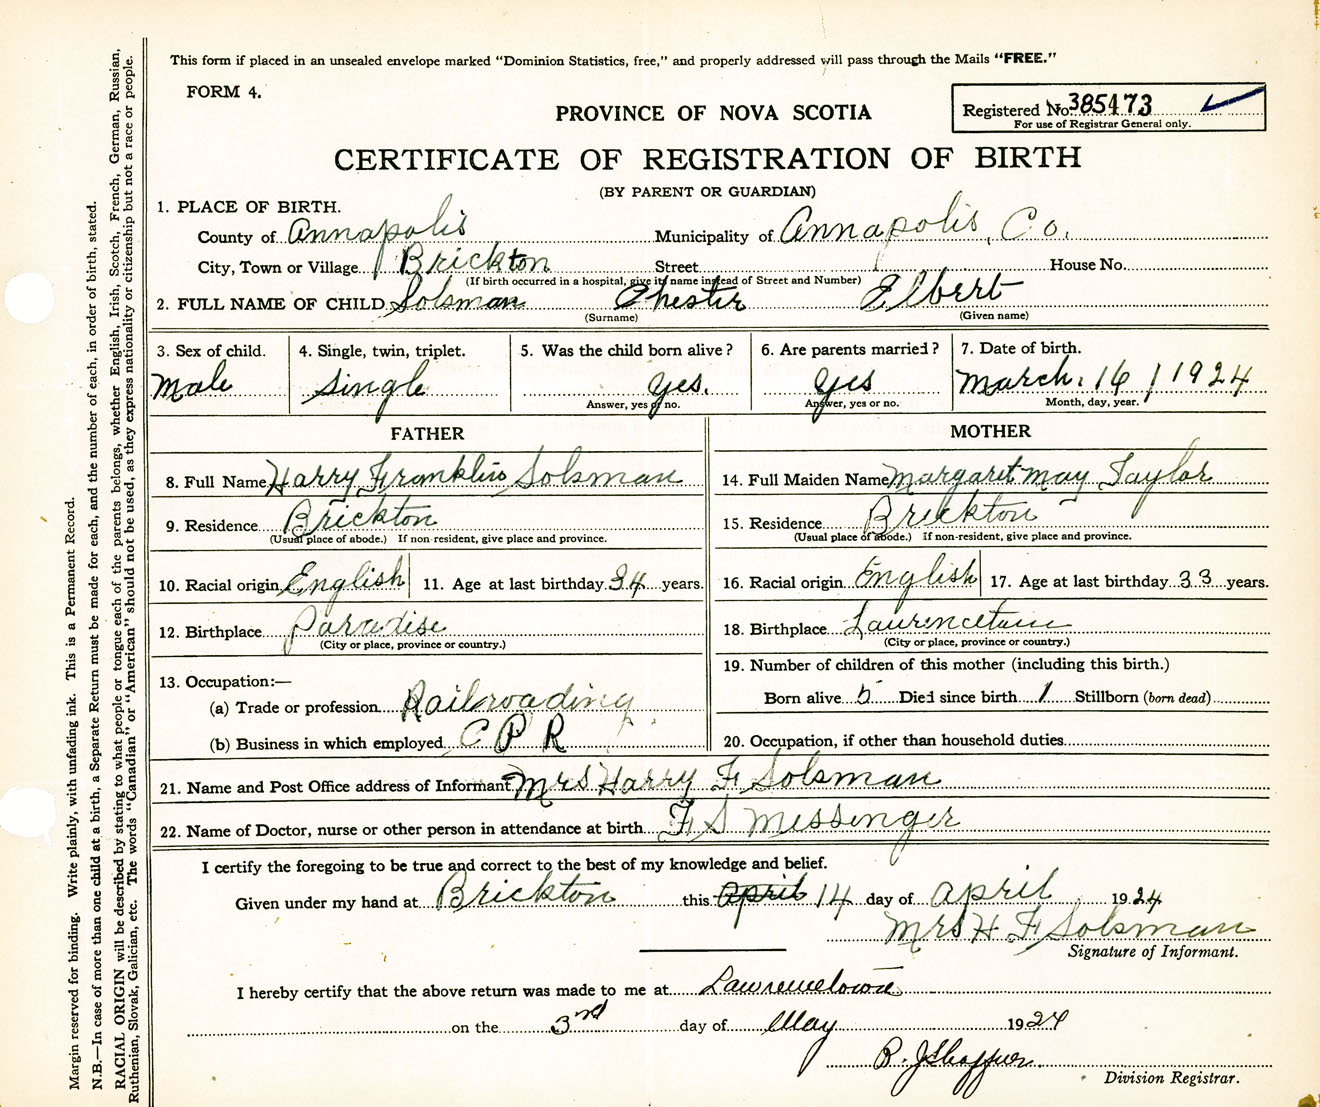 This form if placed in an unsealed envelope marked "Dominion Statistics, free," and properly addressed will pass through the Mails "FREE."
FORM 4.
PROVINCE OF NOVA SCOTIA
Registered No. 385473
For use of Registrar General only.
CERTIFICATE OF REGISTRATION OF BIRTH
(BY PARENT OR GUARDIAN)
1. PLACE OF BIRTH.
County of Annapolis Municipality of Annapolis, Co.
City, Town or Village Brickton Street House No.
(If birth occurred in a hospital, give its name instead of Street and Number)
2. FULL NAME OF CHILD Solsman Chester Elbert
(Surname) (Given name)
3. Sex of child. 4. Single, twin, triplet. 5. Was the child born alive? 6. Are parents married? 7. Date of birth.
Male single yes. yes March. 16 / 1924
Answer, yes or no. Answer, yes or no. Month, day, year.
FATHER MOTHER
8. Full Name Harry Franklin Solsman 14. Full Maiden Name Margaret May Taylor
9. Residence Brickton 15. Residence Brickton
(Usual place of abode.) If non-resident, give place and province. (Usual place of abode.) If non-resident, give place and province.
10. Racial origin English 11. Age at last birthday 34 years. 16. Racial origin English 17. Age at last birthday 33 years.
12. Birthplace Paradise 18. Birthplace Laurencetown
(City or place, province or country.) (City or place, province or country.)
13. Occupation:— 19. Number of children of this mother (including this birth.)
(a) Trade or profession Railroading Born alive 5 Died since birth 1 Stillborn (born dead)
(b) Business in which employed C P R 20. Occupation, if other than household duties
21. Name and Post Office address of Informant Mrs Harry F Solsman
22. Name of Doctor, nurse or other person in attendance at birth F S Messenger
I certify the foregoing to be true and correct to the best of my knowledge and belief.
Given under my hand at Brickton this april 14 day of april 1924
Mrs H F Solsman
Signature of Informant.
I hereby certify that the above return was made to me at Lawrencetown
on the 3rd day of May 1924
R. J Shaffner
Division Registrar.
Margin reserved for binding. Write plainly, with unfading ink. This is a Permanent Record.
N.B.—In case of more than one child at a birth, a Separate Return must be made for each, and the number of each, in order of birth, stated.
RACIAL ORIGIN will be described by stating to what people or tongue each of the parents belongs, whether English, Irish, Scotch, French, German, Russian,
Ruthenian, Slovak, Galician, etc. The words "Canadian" or "American" should not be used, as they express nationality or citizenship but not a race or people.